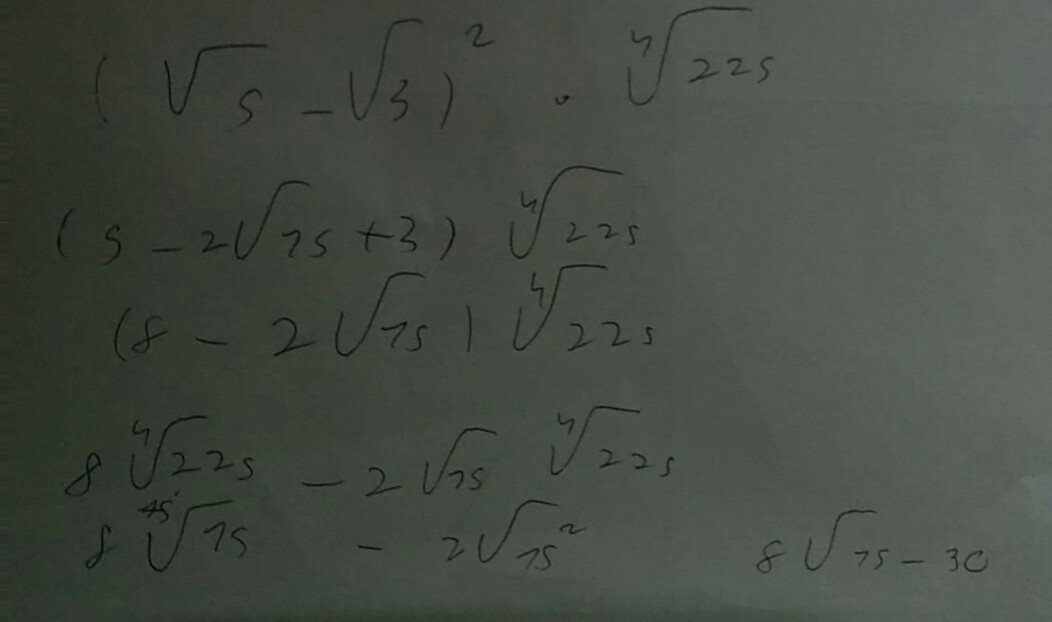 (√5 - √3)² · ∜225
(5 - 2√15 + 3) ∜225
(8 - 2√15) ∜225
8 ∜225 - 2√15 ∜225
8 √15 - 2√15² 8√15 - 30